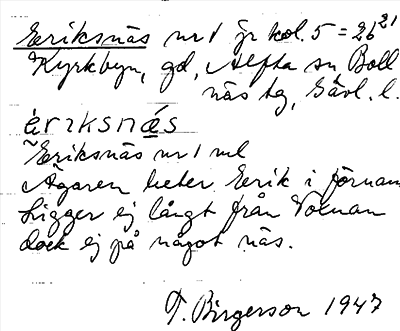 Eeriksnäs nr 1 jr kol. 5 = 26²¹
Kyrkbyn, gd, Alfta sn Boll
näs tg, Gävl. l.
èriksnǽs
~Eeriksnäs nr 1 ml
Ägaren heter Eerik i förnamn
Ligger ej långt från Voxnan
dock ej på något näs.
T. Birgerson 1947